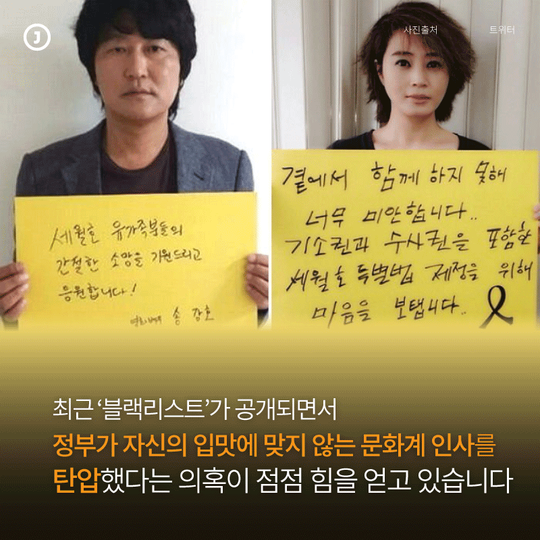 J
사진출처 트위터
세월호 유가족분들의
간절한 소망을 기원드리고
응원합니다!
영화배우 송강호
곁에서 함께 하지 못해
너무 미안합니다..
기소권과 수사권을 포함한
세월호 특별법 제정을 위해
마음을 보탭니다..
최근 ‘블랙리스트’가 공개되면서
정부가 자신의 입맛에 맞지 않는 문화계 인사를
탄압했다는 의혹이 점점 힘을 얻고 있습니다